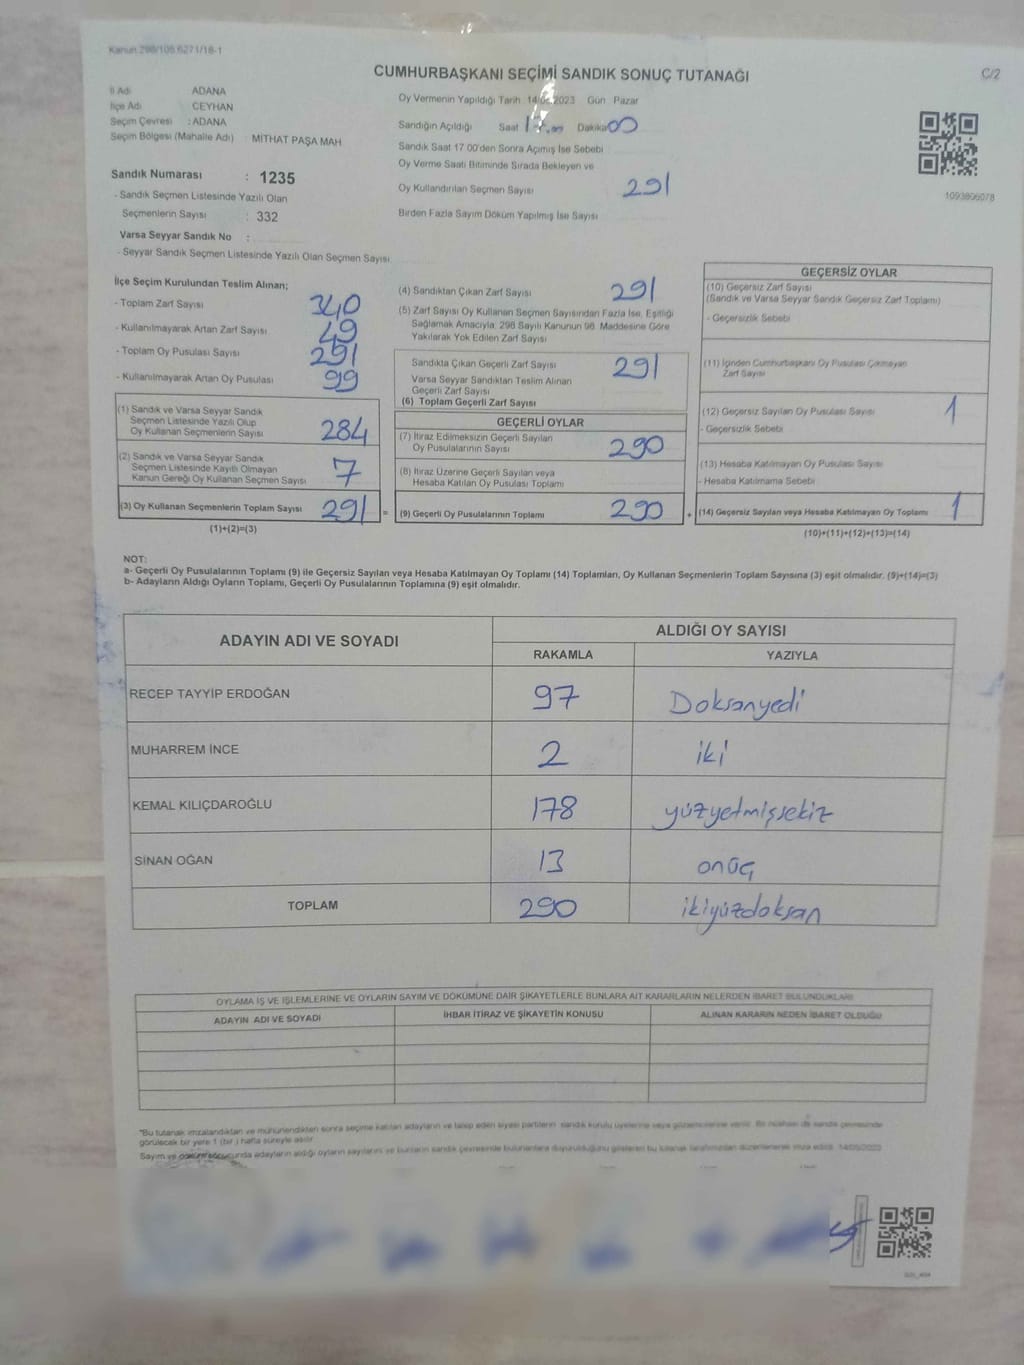 Kanun 298/105.6271/18-1
C/2
CUMHURBAŞKANI SEÇİMİ SANDIK SONUÇ TUTANAĞI
İl Adı : ADANA
İlçe Adı : CEYHAN
Seçim Çevresi : ADANA
Seçim Bölgesi (Mahalle Adı) : MİTHAT PAŞA MAH
Sandık Numarası : 1235
- Sandık Seçmen Listesinde Yazılı Olan
Seçmenlerin Sayısı : 332
Varsa Seyyar Sandık No :
- Seyyar Sandık Seçmen Listesinde Yazılı Olan Seçmen Sayısı
Oy Vermenin Yapıldığı Tarih 14.05.2023 Gün Pazar
Sandığın Açıldığı Saat 17.00 Dakika 00
Sandık Saat 17.00'den Sonra Açımış İse Sebebi
Oy Verme Saati Bitiminde Sırada Bekleyen ve
Oy Kullandırılan Seçmen Sayısı 291
Birden Fazla Sayım Döküm Yapılmış İse Sayısı
1093806078
İlçe Seçim Kurulundan Teslim Alınan;
- Toplam Zarf Sayısı 340
- Kullanılmayarak Artan Zarf Sayısı 49
- Toplam Oy Pusulası Sayısı 291
- Kullanılmayarak Artan Oy Pusulası 99
(1) Sandık ve Varsa Seyyar Sandık
Seçmen Listesinde Yazılı Olup
Oy Kullanan Seçmenlerin Sayısı 284
(2) Sandık ve Varsa Seyyar Sandık
Seçmen Listesinde Kayıtlı Olmayan
Kanun Gereği Oy Kullanan Seçmen Sayısı 7
(3) Oy Kullanan Seçmenlerin Toplam Sayısı 291 =
(1)+(2)=(3)
(4) Sandıktan Çıkan Zarf Sayısı 291
(5) Zarf Sayısı Oy Kullanan Seçmen Sayısından Fazla İse, Eşitliği
Sağlamak Amacıyla, 298 Sayılı Kanunun 98. Maddesine Göre
Yakılarak Yok Edilen Zarf Sayısı
Sandıkta Çıkan Geçerli Zarf Sayısı 291
Varsa Seyyar Sandıktan Teslim Alınan
Geçerli Zarf Sayısı
(6) Toplam Geçerli Zarf Sayısı
GEÇERLİ OYLAR
(7) İtiraz Edilmeksizin Geçerli Sayılan
Oy Pusulalarının Sayısı 290
(8) İtiraz Üzerine Geçerli Sayılan veya
Hesaba Katılan Oy Pusulası Toplamı
(9) Geçerli Oy Pusulalarının Toplamı 290 +
GEÇERSİZ OYLAR
(10) Geçersiz Zarf Sayısı
(Sandık ve Varsa Seyyar Sandık Geçersiz Zarf Toplamı)
- Geçersizlik Sebebi
(11) İçinden Cumhurbaşkanı Oy Pusulası Çıkmayan
Zarf Sayısı
(12) Geçersiz Sayılan Oy Pusulası Sayısı 1
- Geçersizlik Sebebi
(13) Hesaba Katılmayan Oy Pusulası Sayısı
- Hesaba Katılmama Sebebi
(14) Geçersiz Sayılan veya Hesaba Katılmayan Oy Toplamı 1
(10)+(11)+(12)+(13)=(14)
NOT:
a- Geçerli Oy Pusulalarının Toplamı (9) ile Geçersiz Sayılan veya Hesaba Katılmayan Oy Toplamı (14) Toplamları, Oy Kullanan Seçmenlerin Toplam Sayısına (3) eşit olmalıdır. (9)+(14)=(3)
b- Adayların Aldığı Oyların Toplamı, Geçerli Oy Pusulalarının Toplamına (9) eşit olmalıdır.
ADAYIN ADI VE SOYADI
ALDIĞI OY SAYISI
RAKAMLA YAZIYLA
RECEP TAYYİP ERDOĞAN 97 Doksanyedi
MUHARREM İNCE 2 iki
KEMAL KILIÇDAROĞLU 178 yüzyetmişsekiz
SİNAN OĞAN 13 onüç
TOPLAM 290 ikiyüzdoksan
OYLAMA İŞ VE İŞLEMLERİNE VE OYLARIN SAYIM VE DÖKÜMÜNE DAİR ŞİKAYETLERLE BUNLARA AİT KARARLARIN NELERDEN İBARET BULUNDUKLARI
ADAYIN ADI VE SOYADI İHBAR İTİRAZ VE ŞİKAYETİN KONUSU ALINAN KARARIN NEDEN İBARET OLDUĞU
*Bu tutanak imzalandıktan ve mühürlendikten sonra seçime katılan adayların ve talep eden siyasi partilerin sandık kurulu üyelerine veya gözlemcilerine verilir. Bir nüshası da sandık çevresinde
görülecek bir yere 1 (bir ) hafta süreyle asılır.
Sayım ve dökümü sonucunda adayların aldığı oyların sayılarını ve bunların sandık çevresinde bulunanlara duyurulduğunu gösteren bu tutanak tarafımızdan düzenlenerek imza edildi. 14/05/2023